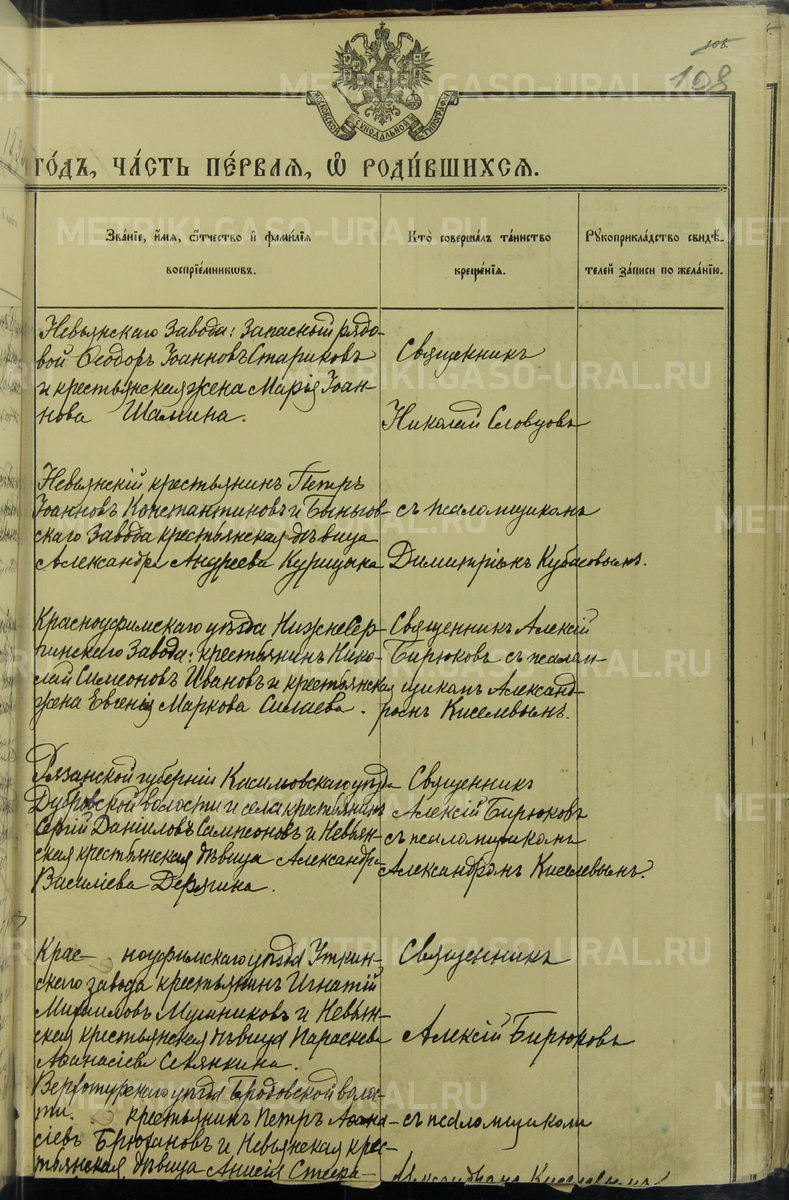 108.
108
МОСКОВСКОЙ СѴНОДАЛЬНОЙ ТИПОГРАФІИ
METRIKI.GASO-URAL.RU
го́дъ, ча́сть пе́рвая, ѡ҆ роди́вшихся.
Зва́нїе, и҆́мя, ѻ҆́тчество и҆ фами́лїя
воспрїе́мникѡвъ.
Кто̀ соверша́лъ та́инство
креще́нїя.
Рꙋкоприкла́дство свидѣ́-
телей за́писи по жела́нїю.
Невьянскаго Завода: Запасный рядо-
вой Ѳеодоръ Іоанновъ Стариковъ
и крестьянская жена Марія Іоан-
нова Шалина.
Священникъ
Николай Словцовъ
Невьянскій крестьянинъ Петръ
Іоанновъ Константиновъ и Быньгов-
скаго Завода крестьянская дѣвица
Александра Андреева Курицына
съ псаломщикомъ
Димитріемъ Кубасовымъ.
Красноуфимскаго уѣзда Нижнесер-
гинскаго Завода: крестьянинъ Нико-
лай Симеоновъ Ивановъ и крестьянская
жена Евгенія Маркова Силаева.
Священникъ Алексій
Бирюковъ съ псалом-
щикомъ Александ-
ромъ Киселевымъ.
Рязанской губерніи Касимовскаго уѣзда
Дубровской волости и села крестьянинъ
Сергій Даніиловъ Сампсоновъ и Невьян-
ская крестьянская дѣвица Александра
Василіева Дерягина.
Священникъ
Алексій Бирюковъ
съ псаломщикомъ
Александромъ Киселевымъ.
Крас- ноуфимскаго уѣзда Уткин-
скаго завода крестьянинъ Игнатій
Михаиловъ Мушниковъ и Невьян-
ская крестьянская дѣвица Параскева
Аѳанасіева Селянкина.
Священникъ
Алексій Бирюковъ
Верхотурскаго уѣзда Бродовской волос-
ти. крестьянинъ Петръ Аѳана-
сіевъ Брюхановъ и Невьянская крес-
тьянская дѣвица Анисія Стефа-
съ псаломщикомъ
Александромъ Киселевымъ